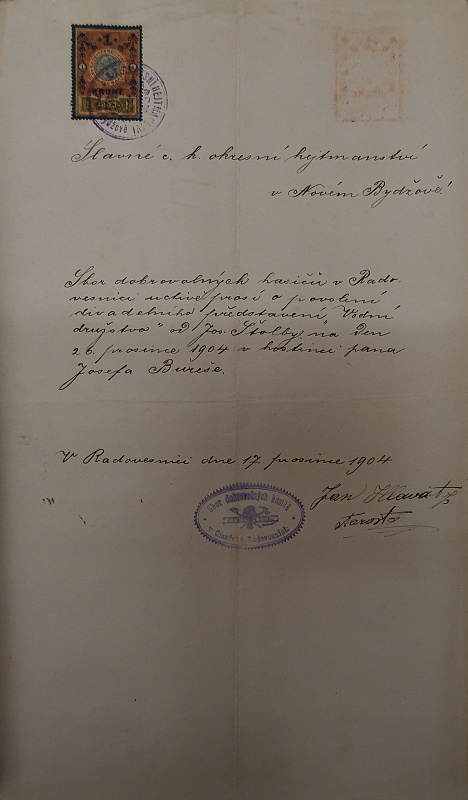 1
KRONE
Slavné c. k. okresní hejtmanství
v Novém Bydžově!
Sbor dobrovolných hasičů v Rado-
vesnici uctivě prosí o povolení
divadelního představení "Vodní
družstvo" od Jos. Štolby na den
26. prosince 1904 v hostinci pana
Josefa Bureše.
V Radovesnici dne 17. prosince 1904
Jan Hlavatý
starosta
Sbor dobrovolných hasičů
v Radovesnicích